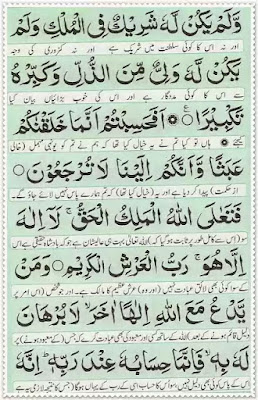 وَلَمْ يَكُنْ لَّهٗ شَرِيْكٌ فِى الْمُلْكِ وَلَمْ
اور نہ اس کا کوئی سلطنت میں شریک ہے اور نہ کمزوری کی وجہ
يَكُنْ لَّهٗ وَلِىٌّ مِّنَ الذُّلِّ وَكَبِّرْهُ
سے اس کا کوئی مددگار ہے اور اس کی خوب بڑائیاں بیان کیا
تَكْبِيْرًا ۞ اَفَحَسِبْتُمْ اَنَّمَا خَلَقْنٰكُمْ
کیجئے ہاں تو کیا تم نے یہ خیال کیا تھا کہ ہم نے تم کو یونہی مہمل (خالی
عَبَثًا وَّاَنَّكُمْ اِلَيْنَا لَا تُرْجَعُوْنَ ۞
از حکمت) پیدا کر دیا ہے اور یہ (خیال کیا تھا) کہ تم ہمارے پاس نہیں لائے جاؤ گے۔
فَتَعٰلَى اللّٰهُ الْمَلِكُ الْحَقُّ ۚ لَاۤ اِلٰهَ
سو (اس سے کامل طور پر ثابت ہو گیا کہ) اللہ تعالیٰ بہت ہی عالیشان ہے جو کہ بادشاہ حقیقی ہے اس
اِلَّا هُوَ ۚ رَبُّ الْعَرْشِ الْكَرِيْمِ ۞ وَمَنْ
کے سوا کوئی بھی لائق عبادت نہیں (اور وہ) عرش عظیم کا مالک ہے۔ اور جو شخص (اس امر پر
يَّدْعُ مَعَ اللّٰهِ اِلٰهًا اٰخَرَ ۙ لَا بُرْهَانَ
دلیل قائم ہونے کے بعد) اللہ کے ساتھ کسی اور معبود کی بھی عبادت کرے کہ جس (کے معبود ہونے) پر
لَهٗ بِهٖ ۙ فَاِنَّمَا حِسَابُهٗ عِنْدَ رَبِّهٖ ؕ اِنَّهٗ
اس کے پاس کوئی بھی دلیل نہیں سو اس کا حساب اسی کے رب کے یہاں ہو گا (جس کا نتیجہ لازمی ہے